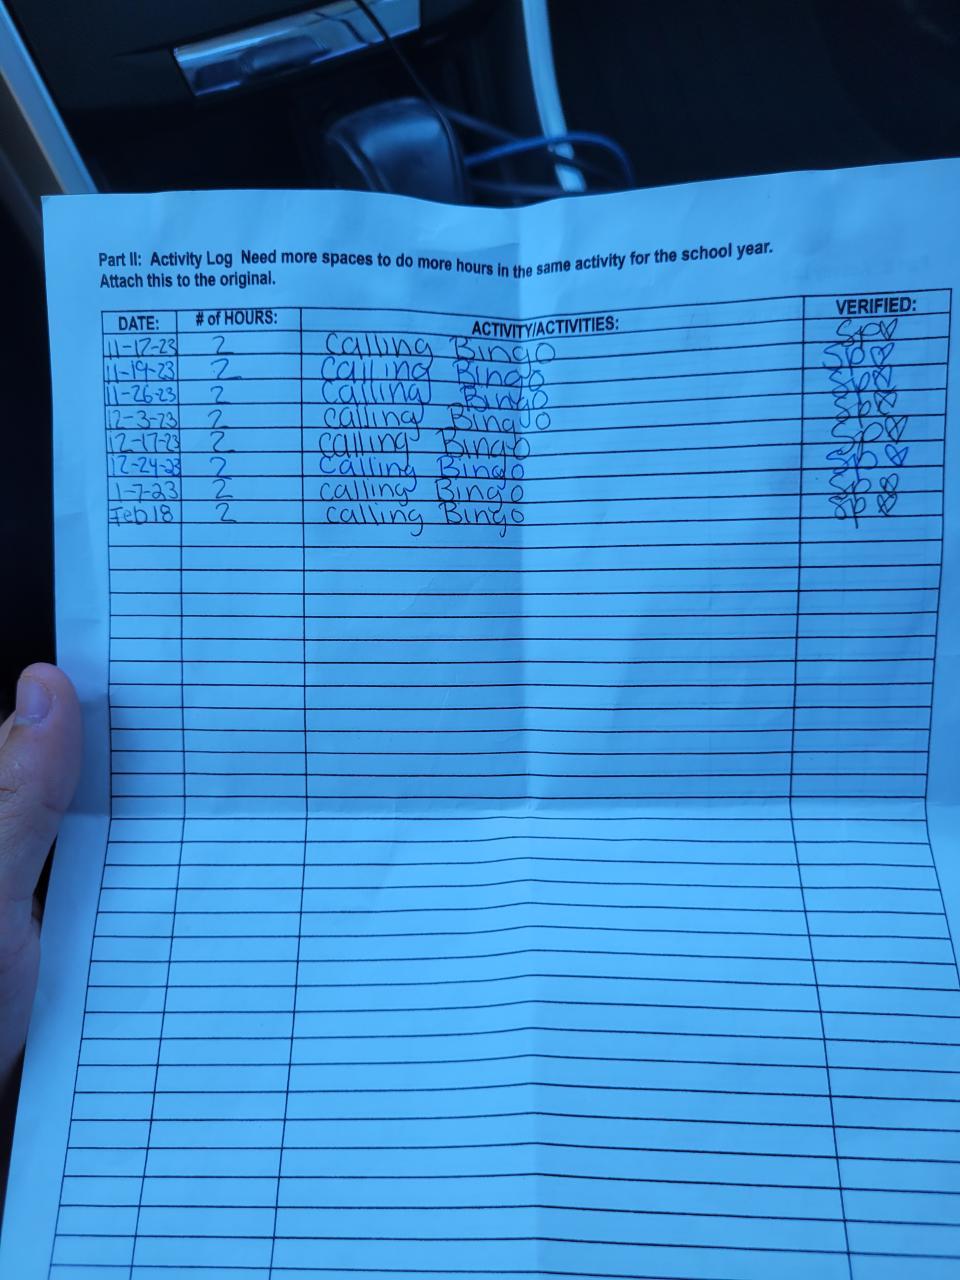 Part II: Activity Log Need more spaces to do more hours in the same activity for the school year.
Attach this to the original.
DATE: # of HOURS: ACTIVITY/ACTIVITIES: VERIFIED:
11-12-23 2 calling Bingo Sp♡
11-19-23 2 calling Bingo Sp♡
11-26-23 2 calling Bingo Sp♡
12-3-23 2 calling Bingo Sp♡
12-17-23 2 calling Bingo Sp♡
12-24-23 2 calling Bingo Sp♡
1-7-23 2 calling Bingo Sp♡
Feb 18 2 calling Bingo Sp♡